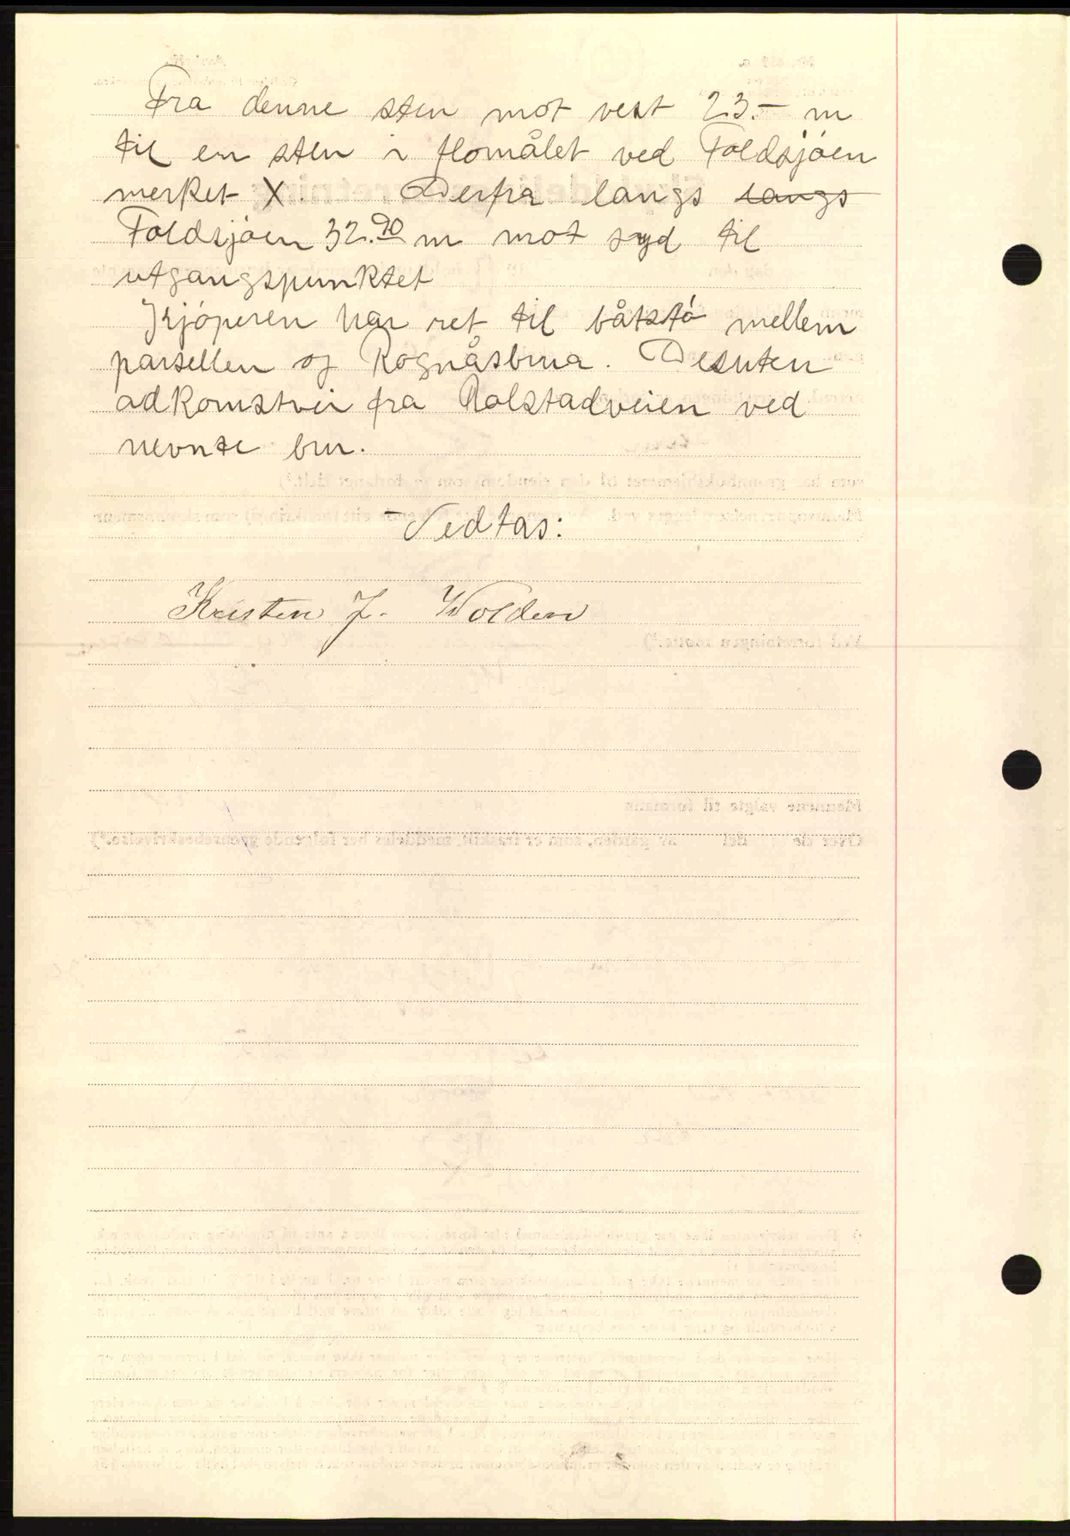 Fra denne sten mot vest 23.- m
til en sten i flomålet ved Foldsjóen
merket X. Derfra langs langs
Foldsjóen 32.90 m mot syd til
utgangspunktet
Kjóperen har ret til båtstó mellem
parsellen og Rognåsbrua. Desuten
adkomstvei fra Rolstadveien ved
nevnte bru.
Vedtas:
Kristen J. Wolden